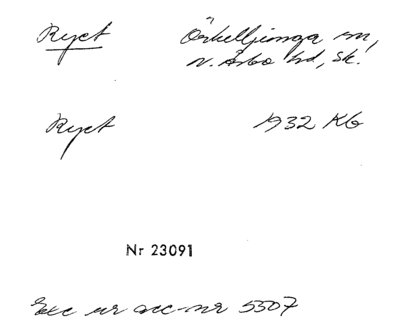 Ryet Örkelljunga sn,
N. Åsbo hd, Sk.
Ryet 1932 KG
Nr 23091
Exc ur acc-nr 5507